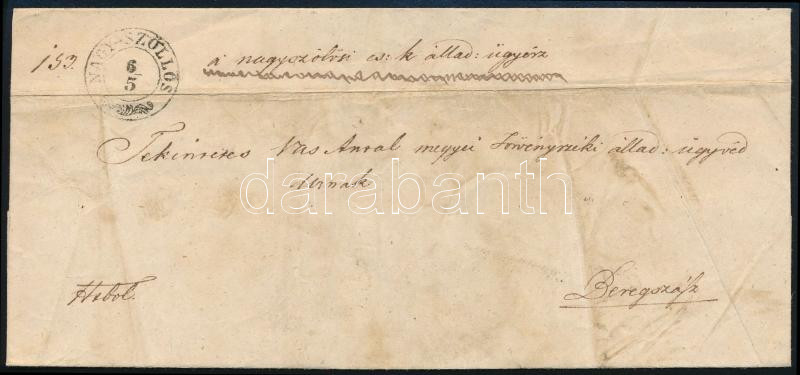 153. NAGY-SZŐLLŐS 6/5 a nagyszőlősi cs: k állad: ügyész
Tekintetes Vas Antal megyei törvényszéki állad: ügyvéd
Urnak
darabanth
Beregszász